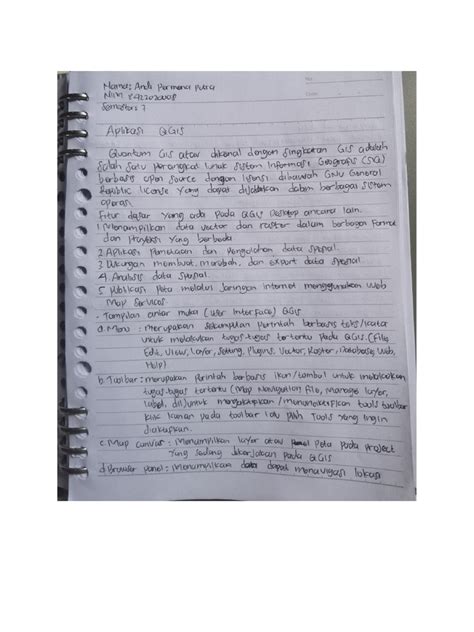 Nama: Andi Permana Putra
NIM
Semesters 7
No.
Date
Aplikasi QGIS
Quantum GIS atau dikenal dengan singkatan GIS adalah
Salah satu perangkat lunak sistem Informasi Geografis (SIG)
berbasis open source dengan lisensi dibawah GNU General
Republic license yang dapat dijalankan dalam berbagai sistem
operasi
Fitur dasar yang ada pada QGIS Desktop ancara lain.
1. Menampilkan data vector dan raster dalam berbagai Format
dan Proyeksi yang berbeda
2. Aplikasi Pemetaan dan Pengolahan data spasial.
3. Dukungan membuat, merubah, dan export data spasial.
4. Analisis data spasial.
5. Publikasi Peta melalui Jaringan internet menggunakan Web
Map Services
- Tampilan antar muka (User Interface) QGIS
a. Menu : merupakan sekumpulan perintah berbasis teks/
untuk melakukan tugas-tugas tertentu pada QGIS (File
Edit, View, Layer, Setting, Plugins, Vector, Raster, Database, Web,
Help)
b. Toolbar : merupakan perintah berbasis ikon/tombol untuk melakukan
tugas-tugas tertentu (Map Navigation File, Manage layer,
Label, dll) untuk mengaktifkan/menonaktifkan tools toolbar
klik kanan pada toolbar lalu pilih Tools yang ingin
diaktifkan.
c. Map canvas : Menampilkan layer atau Peta pada Project
yang sedang dikerjakan pada QGIS
d. Browser panel : Menampilkan data dapat menavigasi lokasi